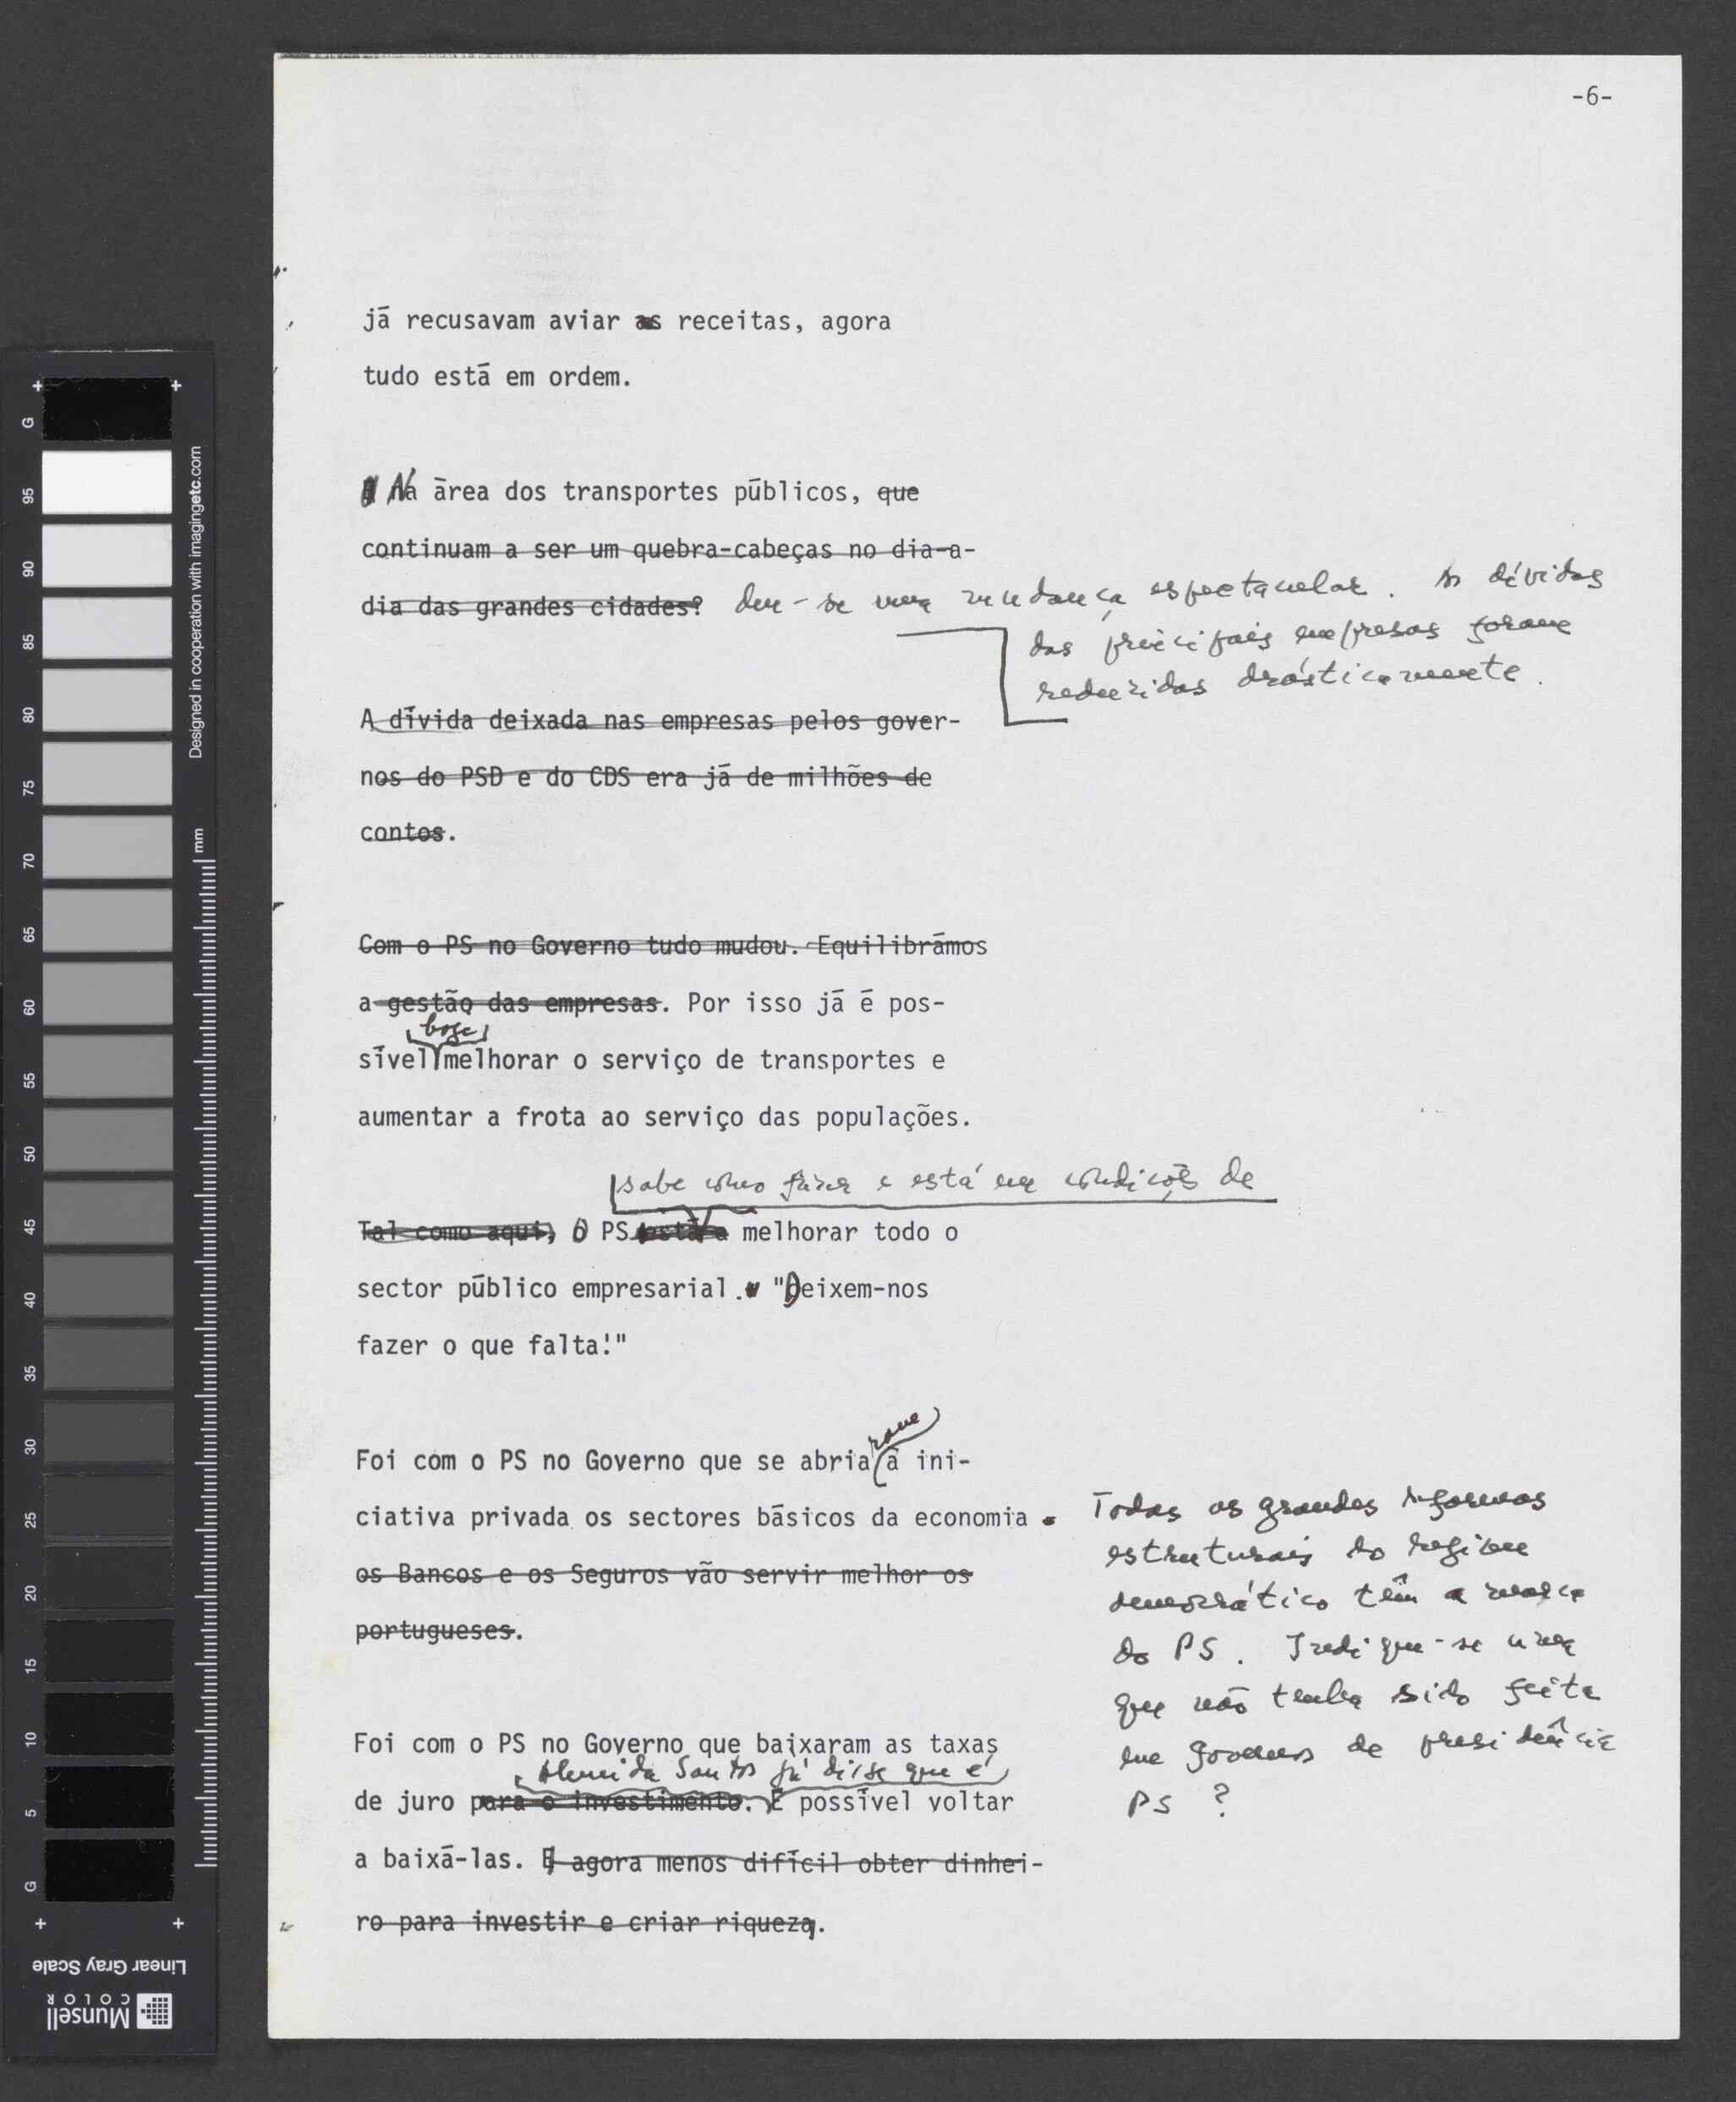 -6-
já recusavam aviar as receitas, agora
tudo está em ordem.
Na área dos transportes públicos, que
continuam a ser um quebra-cabeças no dia-a-
dia das grandes cidades? deu-se uma mudança espectacular. As dívidas
das principais empresas foram
reduzidas drásticamente.
A dívida deixada nas empresas pelos gover-
nos do PSD e do CDS era já de milhões de
contos.
Com o PS no Governo tudo mudou. Equilibrámos
a gestão das empresas. Por isso já é pos-
hoje
sível melhorar o serviço de transportes e
aumentar a frota ao serviço das populações.
sabe como fazer e está em condições de
Tal como aqui, O PS está a melhorar todo o
sector público empresarial. "Deixem-nos
fazer o que falta!"
ram
Foi com o PS no Governo que se abria à ini-
ciativa privada os sectores básicos da economia.
os Bancos e os Seguros vão servir melhor os
portugueses.
Todas as grandes reformas
estruturais do regime
democrático têm a marca
do PS. Indique-se uma
que não tenha sido feita
em governos de presidência
PS ?
Foi com o PS no Governo que baixaram as taxas
Almeida Santos já disse que é
de juro para o investimento. É possível voltar
a baixá-las. É agora menos difícil obter dinhei-
ro para investir e criar riqueza.
G
95
90
85
80
75
70
65
60
55
50
45
40
35
30
25
20
15
10
5
G
Designed in cooperation with imagingetc.com
mm
Linear Gray Scale
Munsell
COLOR